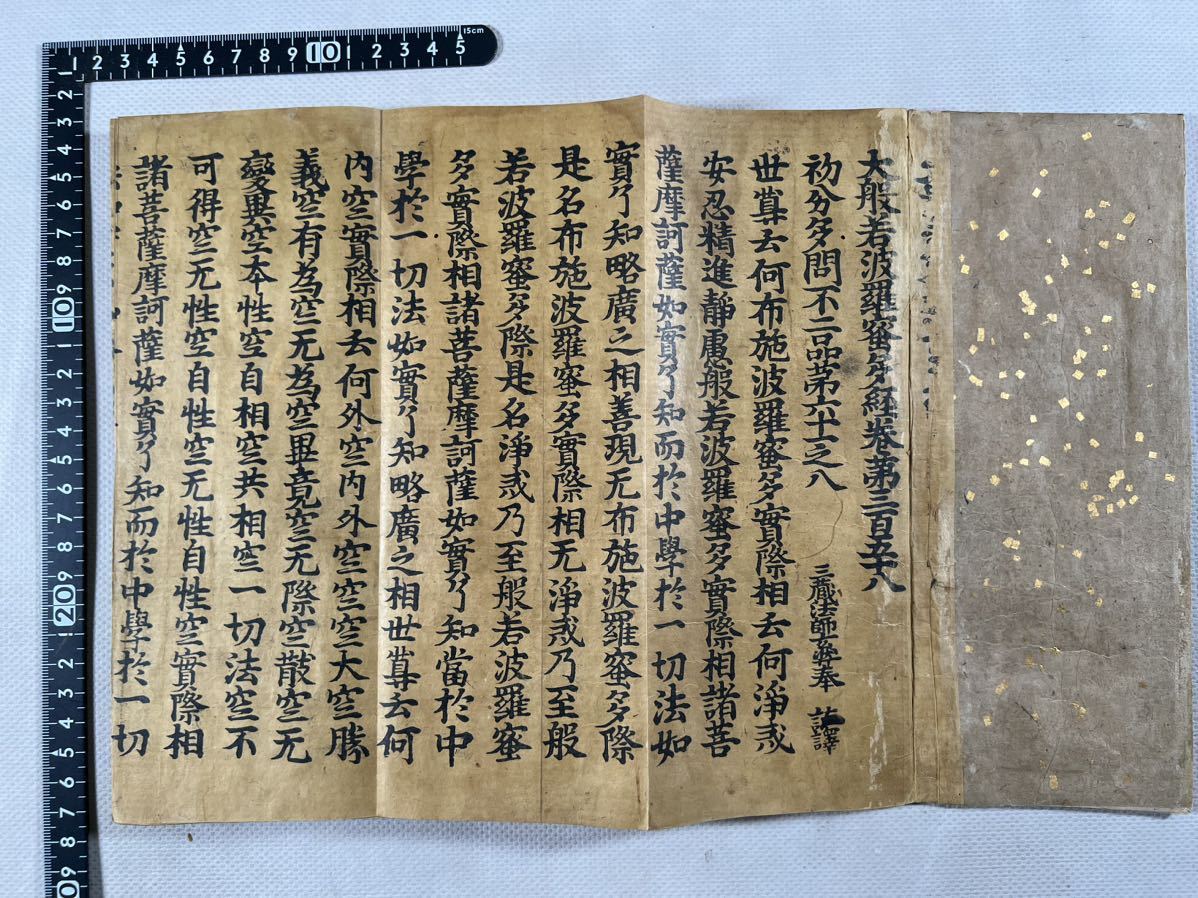 大般若波羅蜜多経巻第三百五十八
初分多問不二品第六十一之八
三蔵法師玄奘奉 詔譯
世尊云何布施波羅蜜多實際相云何淨戒
安忍精進靜慮般若波羅蜜多實際相諸菩
薩摩訶薩如實了知而於中學於一切法如
實了知略廣之相善現无布施波羅蜜多際
是名布施波羅蜜多實際相无淨戒乃至般
若波羅蜜多際是名淨戒乃至般若波羅蜜
多實際相諸菩薩摩訶薩如實了知當於中
學於一切法如實了知略廣之相世尊云何
内空實際相云何外空内外空空空大空勝
義空有為空无為空畢竟空无際空散空无
變異空本性空自相空共相空一切法空不
可得空无性空自性空无性自性空實際相
諸菩薩摩訶薩如實了知而於中學於一切
1 2 3 4 5 6 7 8 9 10 1 2 3 4 5 15cm
2 3 4 5 6 7 8 9 10 1 2 3 4 5 6 7 8 9 20 1 2 3 4 5 6 7 8 9